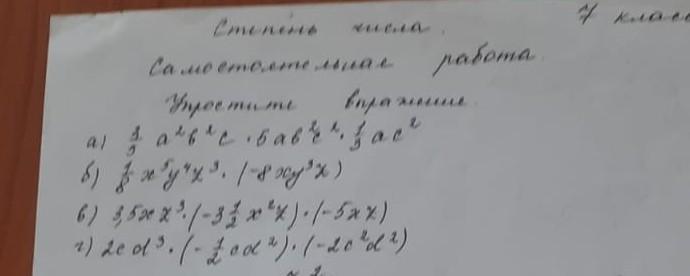 Степень числа. 7 клас
Самостоятельная работа
Упростите выражение.
а) a²b²c · 6ab²c² · 1/3 ac²
б) 1/8 x⁵y⁴z³ · (-8xy³z)
в) 3,5xz³ · (-3 1/2 x²z) · (-5xz)
г) 2cd³ · (-1/2 cd²) · (-2c²d²)